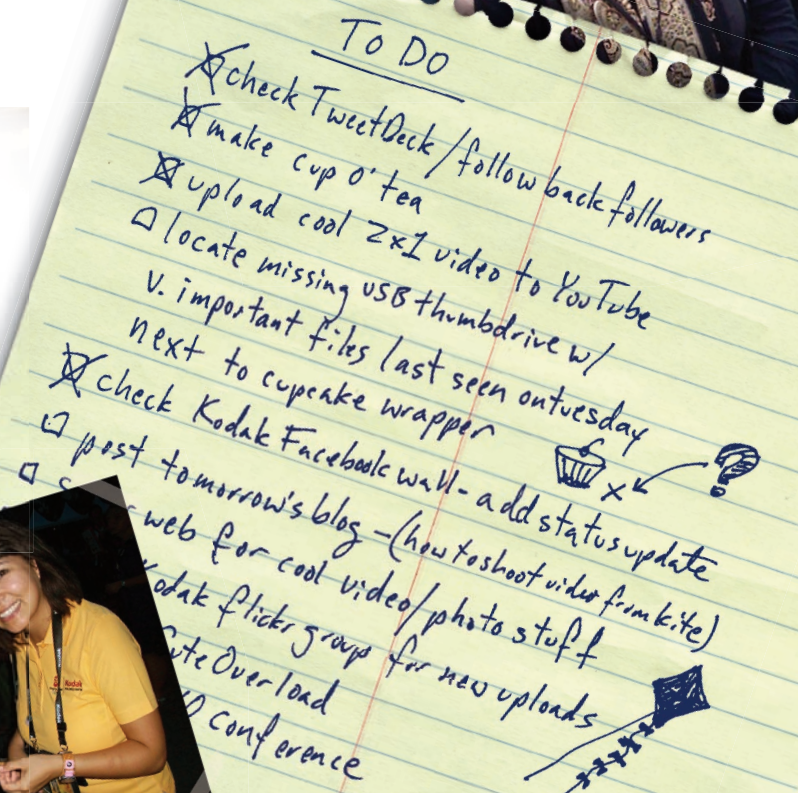 To Do
check TweetDeck/follow back followers
make cup o' tea
upload cool 2x1 video to YouTube
locate missing USB thumbdrive w/
v. important files last seen on tuesday
next to cupcake wrapper
check Kodak Facebook wall - add status update
post tomorrow's blog - (how to shoot video from kite)
web for cool video/photo stuff
Kodak flickr group for new uploads
Cute Overload
conference
Kodak